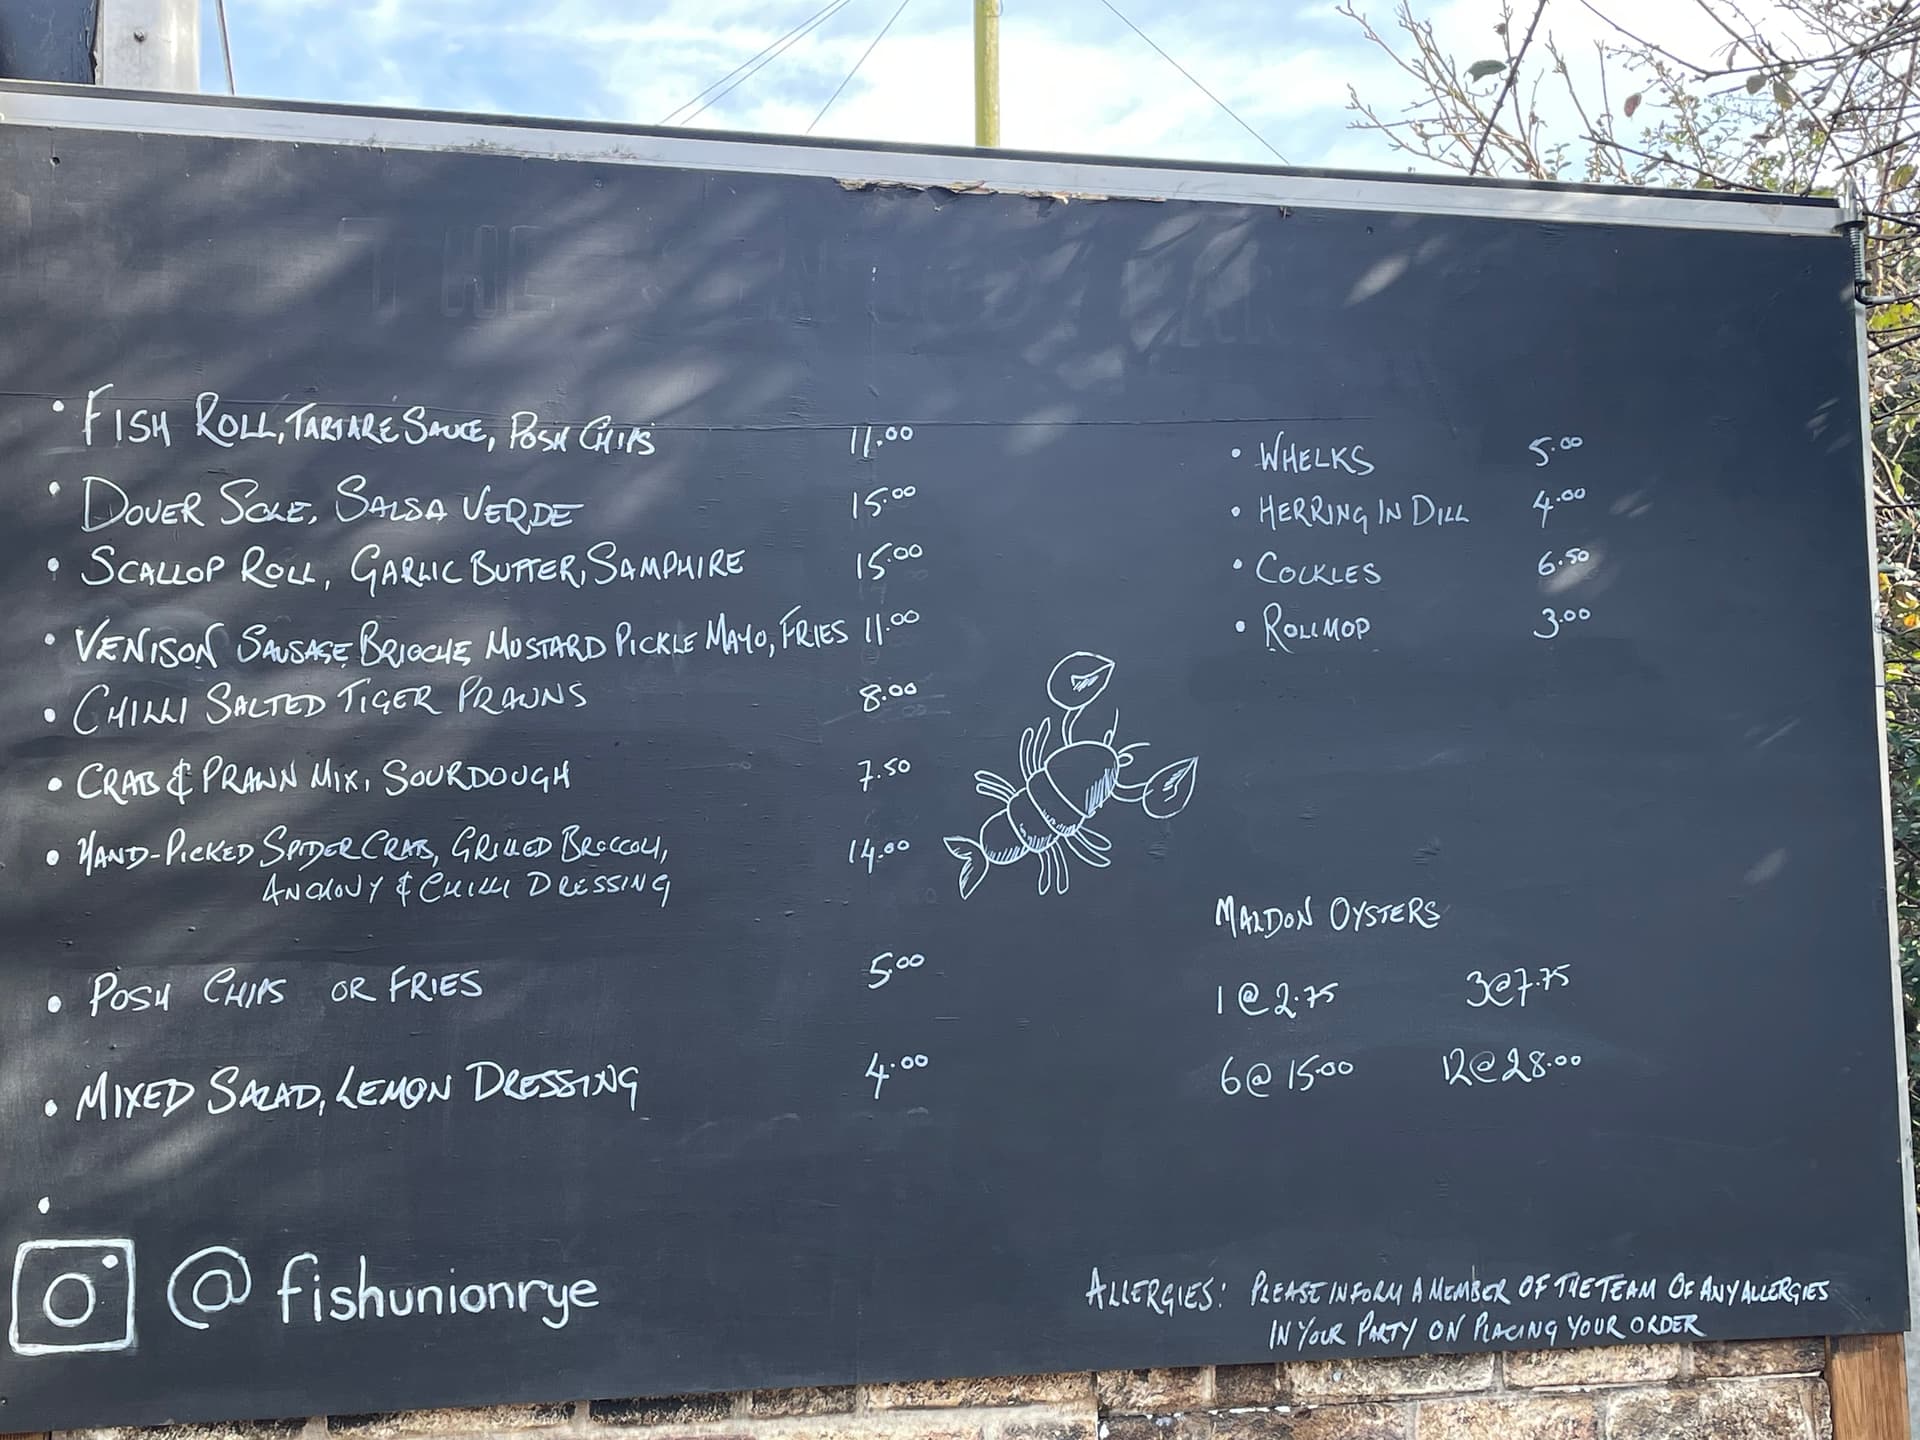 • FISH ROLL, TARTARE SAUCE, POSH CHIPS 11.00
• DOVER SOLE, SALSA VERDE 15.00
• SCALLOP ROLL, GARLIC BUTTER, SAMPHIRE 15.00
• VENISON SAUSAGE, BRIOCHE, MUSTARD PICKLE MAYO, FRIES 11.00
• CHILLI SALTED TIGER PRAWNS 8.00
• CRAB & PRAWN MIX, SOURDOUGH 7.50
• HAND-PICKED SPIDER CRAB, GRILLED BROCCOLI, 14.00
ANCHOVY & CHILLI DRESSING
• POSH CHIPS OR FRIES 5.00
• MIXED SALAD, LEMON DRESSING 4.00
•
@fishunionrye
• WHELKS 5.00
• HERRING IN DILL 4.00
• COCKLES 6.50
• ROLLMOP 3.00
MALDON OYSTERS
1 @ 2.75 3@7.75
6@ 15.00 12@28.00
ALLERGIES: PLEASE INFORM A MEMBER OF THE TEAM OF ANY ALLERGIES
IN YOUR PARTY ON PLACING YOUR ORDER